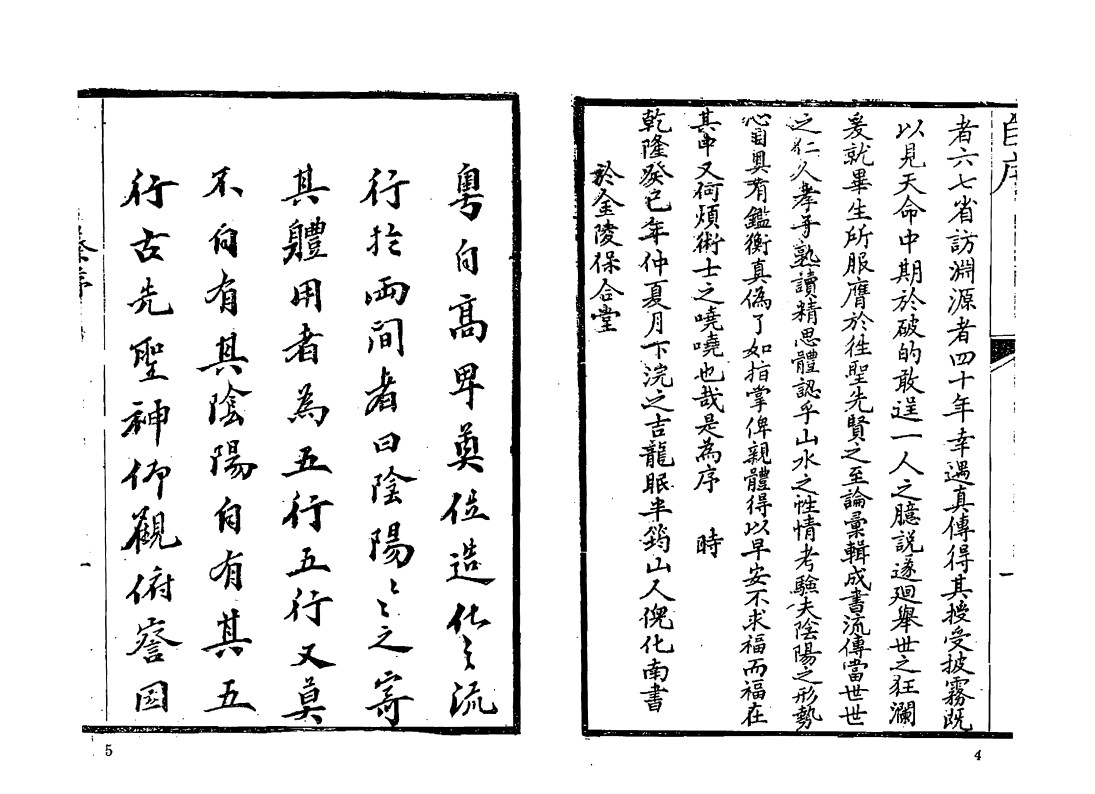 自序
者六七省訪淵源者四十年幸遇真傳得其授受披霧既
以見天命中期於破的敢逞一人之臆說遂廻舉世之狂瀾
爰就畢生所服膺於徃聖先賢之至論彙輯成書流傳當世世
之仁人孝子熟讀精思體認乎山水之性情考驗夫陰陽之形勢
心目奧有鑑衡真偽了如指掌俾親體得以早安不求福而福在
其中又何煩術士之嘵嘵也哉是為序 時
乾隆癸巳年仲夏月下浣之吉龍眠半筠山人倪化南書
於金陵保合堂
4
粵自高卑奠位造化之流
行於兩間者曰陰陽〻〻之寄
其體用者為五行五行又莫
不自有其陰陽自有其五
行古先聖神仰觀俯察因
5